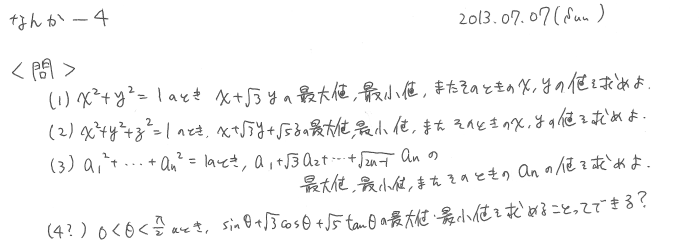 なんか－4 2013.07.07(Sun)
<問>
(1) x²+y²=1のとき x+√3yの最大値,最小値,またそのときのx,yの値を求めよ.
(2) x²+y²+z²=1のとき, x+√3y+√5zの最大値,最小値,またそのときのx,yの値を求めよ.
(3) a₁²+…+aₙ²=1のとき, a₁+√3a₂+…+√2n-1 aₙの
最大値,最小値,またそのときのaₙの値を求めよ.
(4?) 0<θ<π/2のとき, sinθ+√3cosθ+√5tanθの最大値・最小値を求めることってできる?